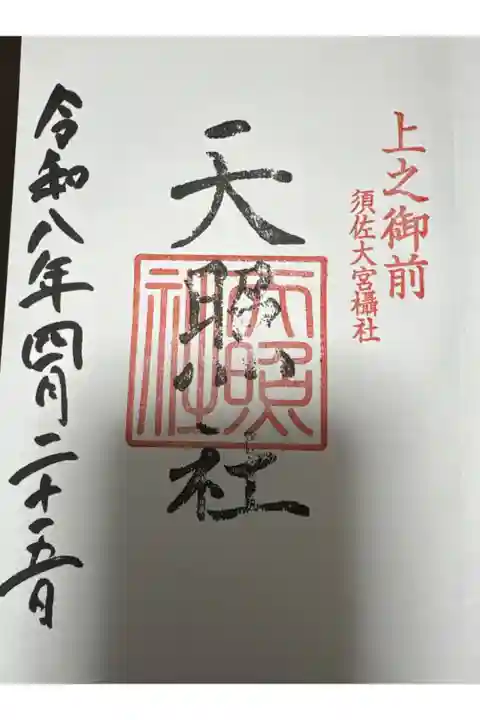 上之御前
須佐大宮攝社
天照社
天照社
令和八年四月二十五日